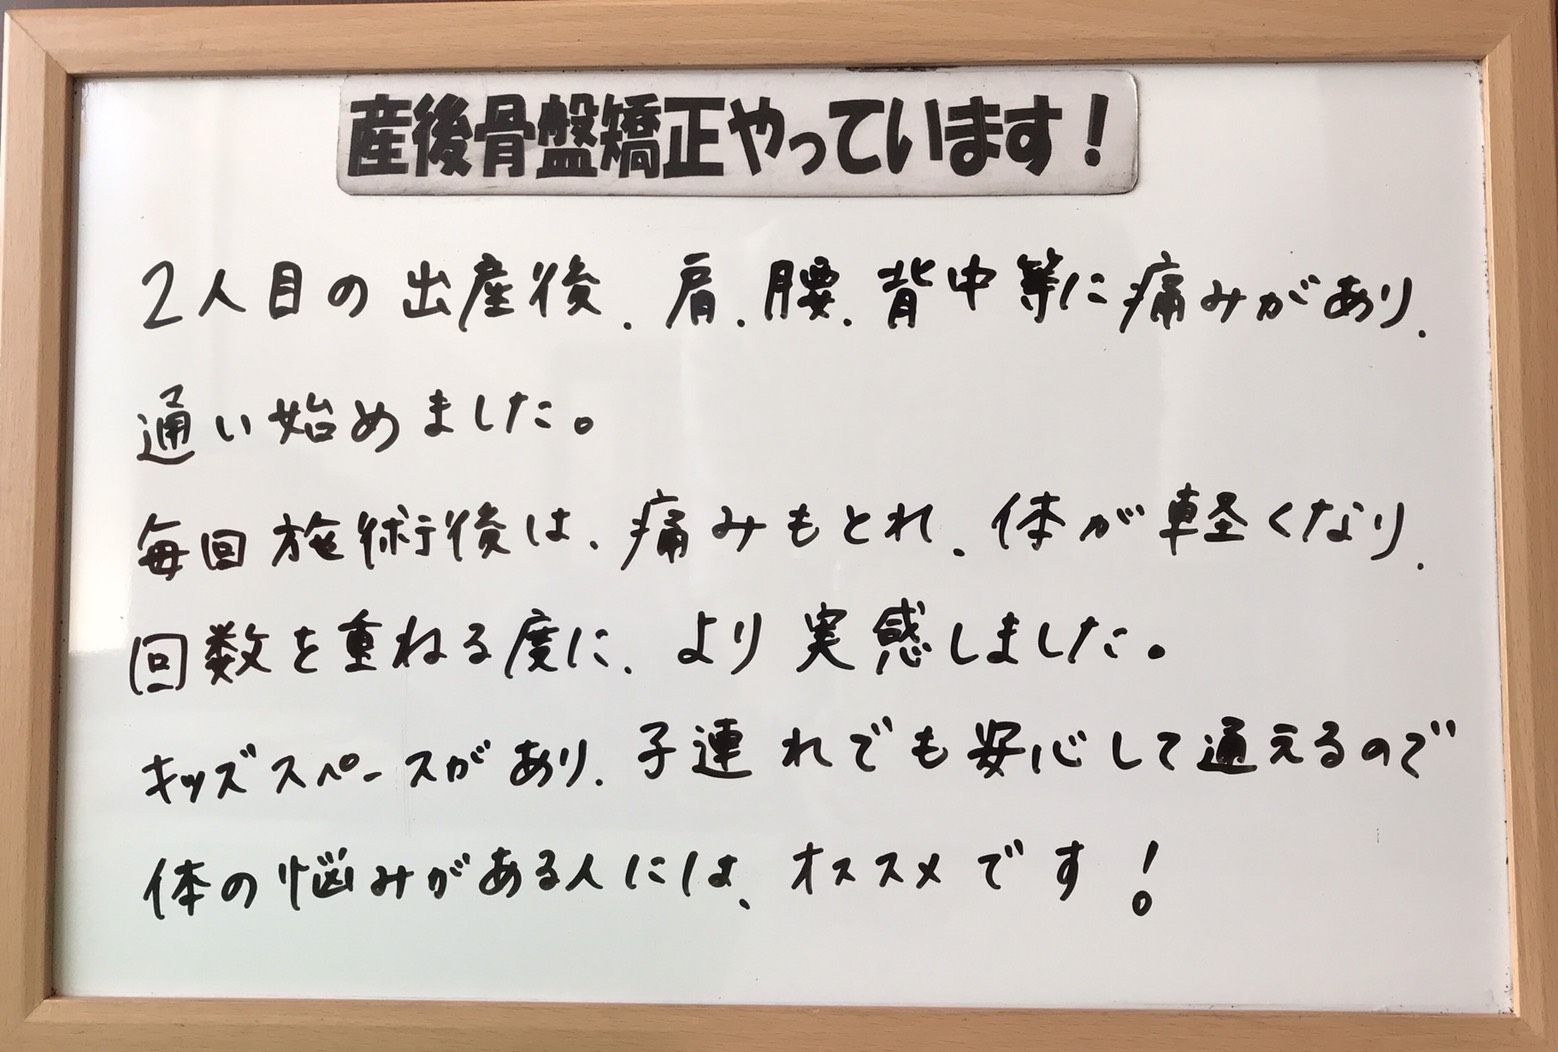 産後骨盤矯正やっています！
2人目の出産後、肩、腰、背中等に痛みがあり、
通い始めました。
毎回施術後は、痛みもとれ、体が軽くなり、
回数を重ねる度に、より実感しました。
キッズスペースがあり、子連れでも安心して通えるので
体の悩みがある人には、オススメです！